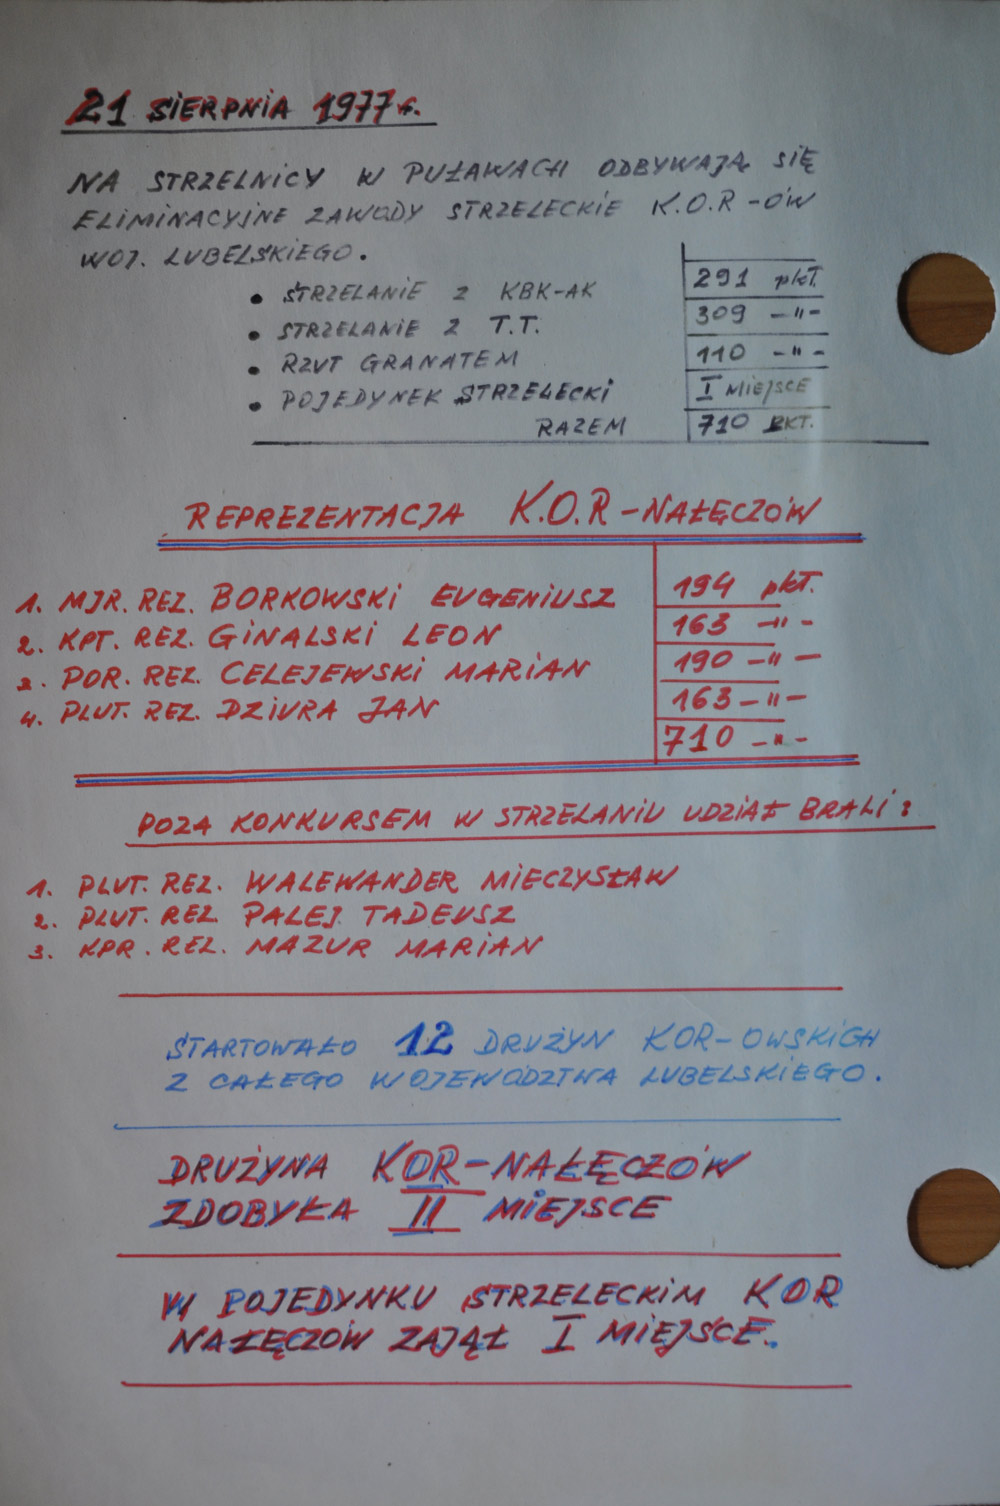 21 SIERPNIA 1977 r.
NA STRZELNICY W PUŁAWACH ODBYWAJĄ SIĘ
ELIMINACYJNE ZAWODY STRZELECKIE K.O.R-ÓW
WOJ. LUBELSKIEGO.
• STRZELANIE Z KBK-AK 291 pkt.
• STRZELANIE Z T.T. 309 -"-
• RZUT GRANATEM 110 -"-
• POJEDYNEK STRZELECKI I MIEJSCE
RAZEM 710 PKT.
REPREZENTACJA K.O.R-NAŁĘCZÓW
1. MJR. REZ. BORKOWSKI EUGENIUSZ 194 pkt.
2. KPT. REZ. GINALSKI LEON 163 -"-
3. POR. REZ. CELEJEWSKI MARIAN 190 -"-
4. PLUT. REZ. DZIURA JAN 163 -"-
710 -"-
POZA KONKURSEM W STRZELANIU UDZIAŁ BRALI:
1. PLUT. REZ. WALEWANDER MIECZYSŁAW
2. PLUT. REZ. PALEJ TADEUSZ
3. KPR. REZ. MAZUR MARIAN
STARTOWAŁO 12 DRUŻYN KOR-OWSKICH
Z CAŁEGO WOJEWÓDZTWA LUBELSKIEGO.
DRUŻYNA KOR-NAŁĘCZÓW
ZDOBYŁA II MIEJSCE
W POJEDYNKU STRZELECKIM KOR
NAŁĘCZÓW ZAJĄŁ I MIEJSCE.